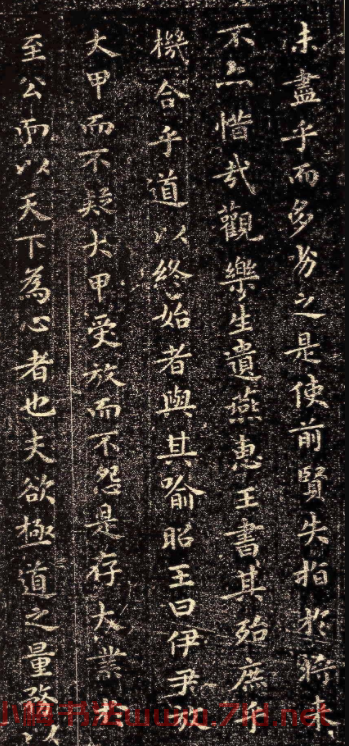 未盡乎而多劣之是使前賢失指於將來
不亦惜哉觀樂生遺燕惠王書其殆庶乎
機合乎道以終始者與其喻昭王曰伊尹放
大甲而不疑大甲受放而不怨是存大業於
至公而以天下為心者也夫欲極道之量務以
小楷书法www.7ld.net